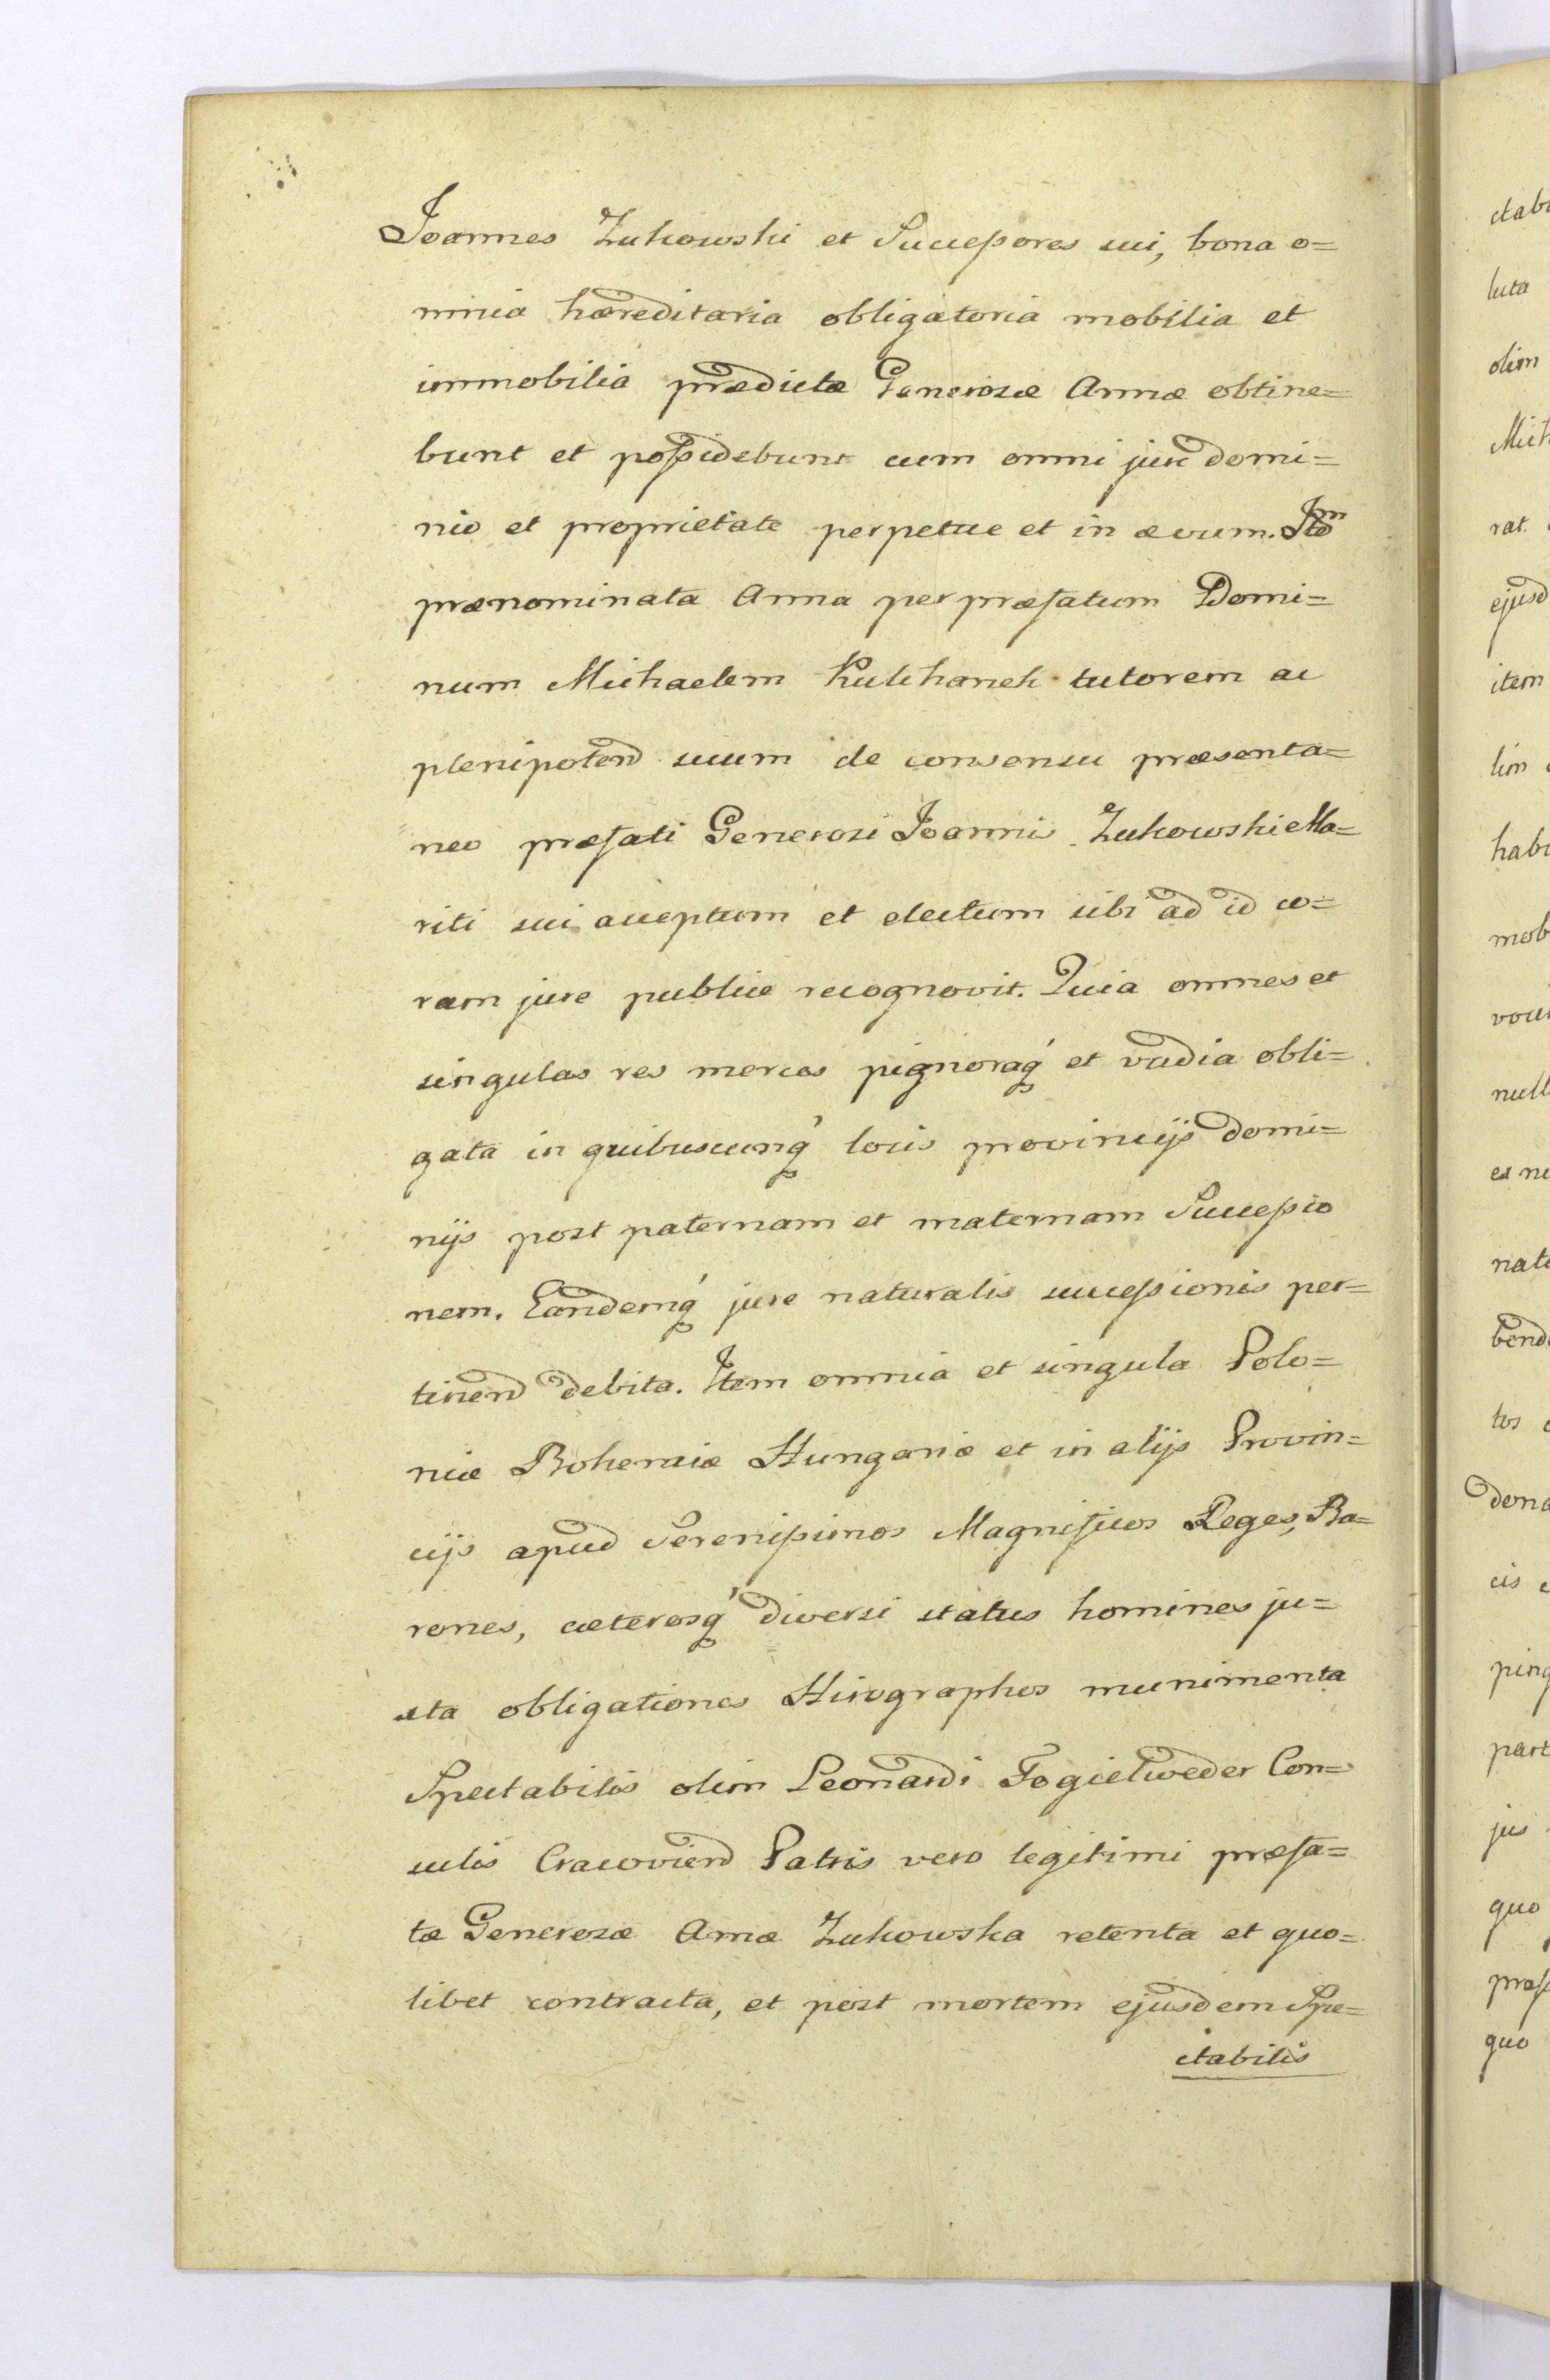 Joannes Zukowski et Successores sui, bona o=
mnia hæreditaria obligatoria mobilia et
immobilia prædictæ Generosæ Annæ obtine=
bunt et possidebunt cum omni jure domi=
nio et proprietate perpetue et in ævum. Itm
prænominata Anna per præfatum Domi=
num Michaelem tutorem ac
plenipotend suum de consensu præsenta=
neo præfati Generosi Joannis Zukowski Ma=
riti sui acceptum et electum sibi ad id co=
ram jure publice recognovit. Quia omnes et
singulas res merces pignoraq́ et vadia obli=
gata in quibuscunq́ locis provincijs domi=
nijs post paternam et maternam Successio
nem. Eandemq́ jure naturalis successionis per=
tinend debita. Item omnia et singula Polo=
niæ Bohemiæ Hungariæ et in alijs Provin=
cijs apud Serenissimos Magnificos Reges, Ba=
rones, cæterosq́ diversi status homines ju=
sta obligationes Hirographos munimenta
Spectabilis olim Leonardi Fogielweder Con=
sulis Cracoviend Patris vero legitimi præfa=
tæ Generosæ Annæ Zukowska retenta et quo=
libet contracta, et post mortem ejusdem Spe=
ctabilis
ctabi
luta
olim
Mich
rat.
ejusd
item
lim
habi
mob
null
et nu
nat
bend
tos
dona
cis
ping
part
jus
quo
quo